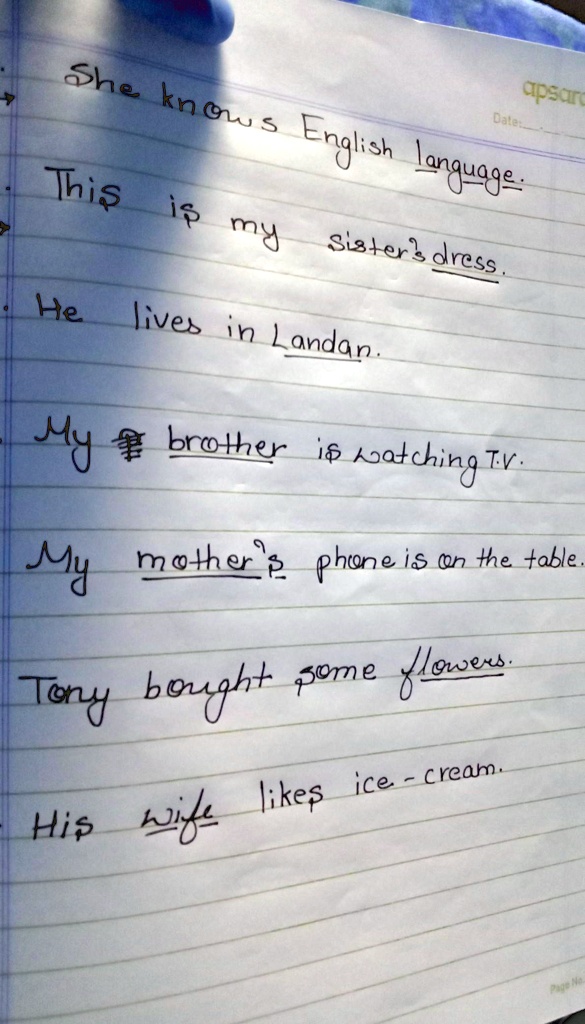 apsara
Date:
She knows English language.
This is my sister's dress.
He lives in Landan.
My brother is watching T.V.
My mother's phone is on the table.
Tony bought some flowers.
His wife likes ice-cream.
Page No.